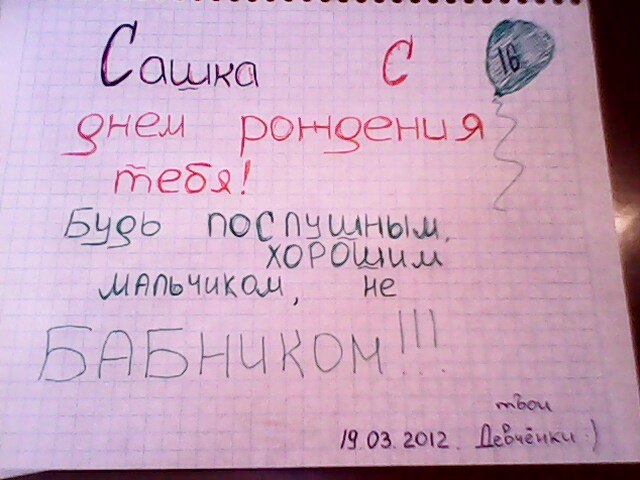 Сашка С
16
днем рождения
тебя!
Будь послушным,
хорошим
мальчиком, не
БАБНИКОМ!!!
твои
19.03.2012. Девчёнки :)